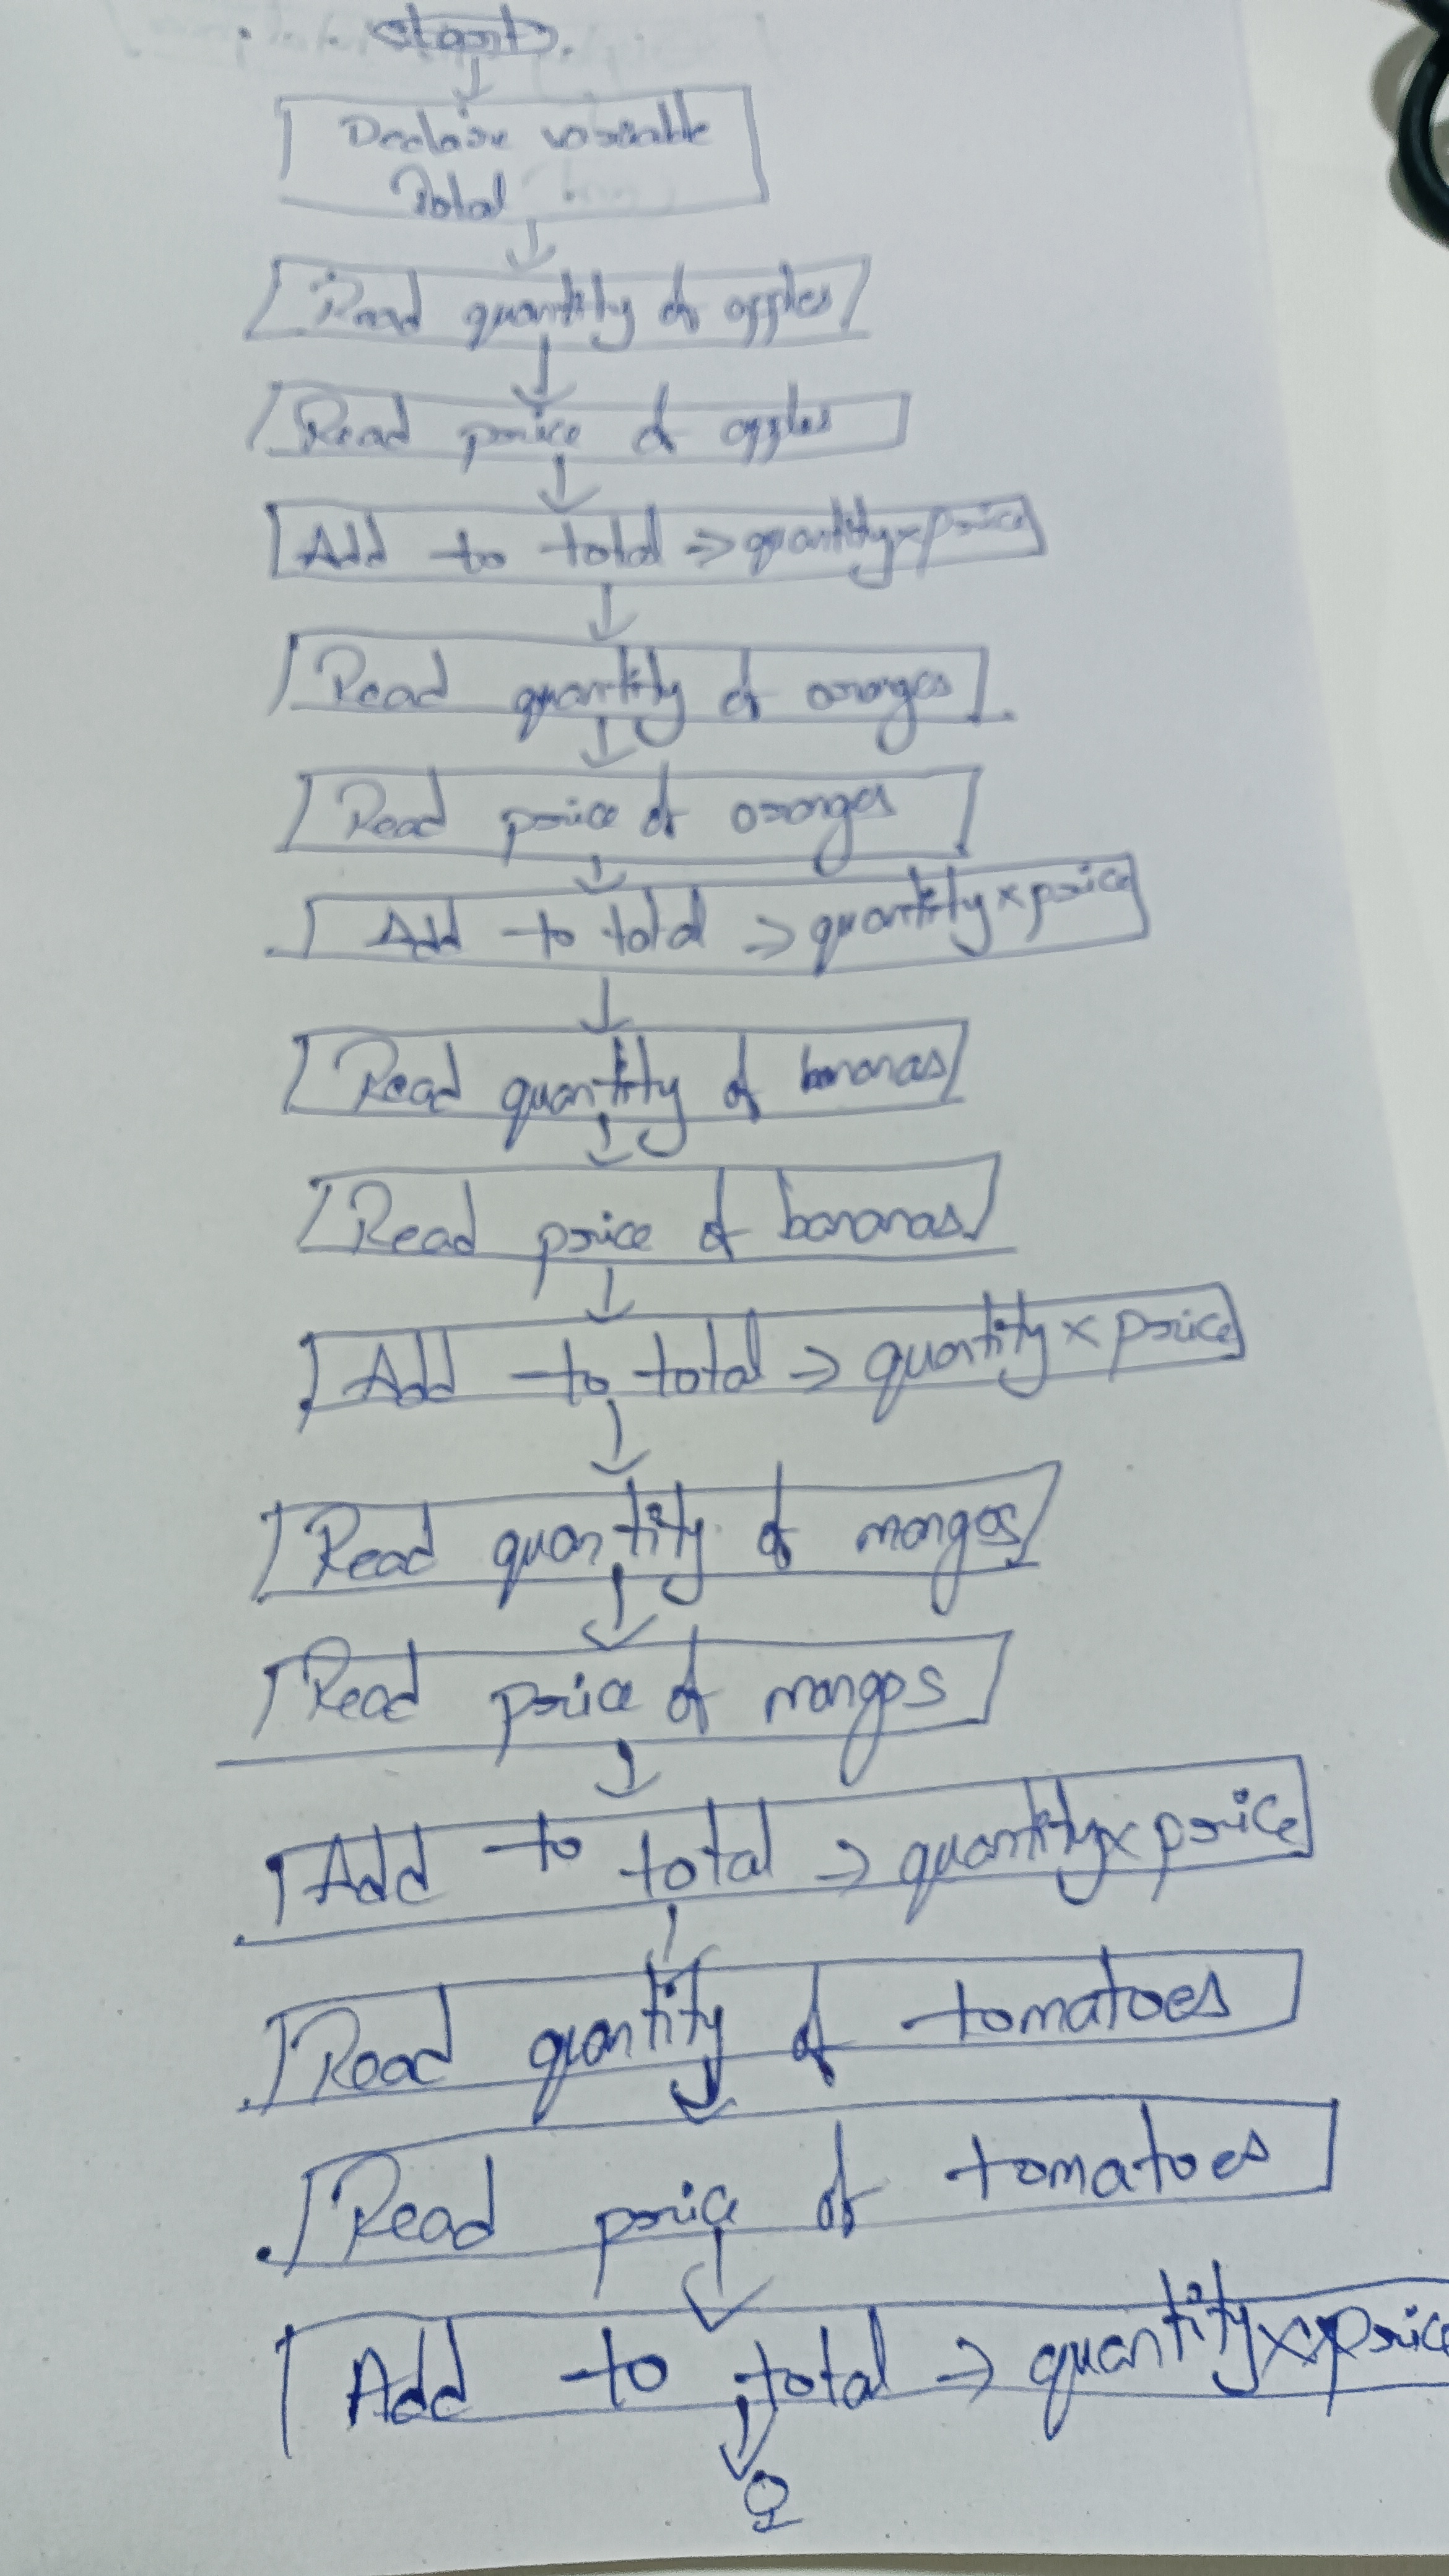 start
Declare variable
Total
Read quantity of apples
Read price of apples
Add to total => quantity x price
Read quantity of oranges
Read price of oranges
Add to total => quantity x price
Read quantity of bananas
Read price of bananas
Add to total => quantity x price
Read quantity of mangos
Read price of mangos
Add to total => quantity x price
Read quantity of tomatoes
Read price of tomatoes
Add to total => quantity x price